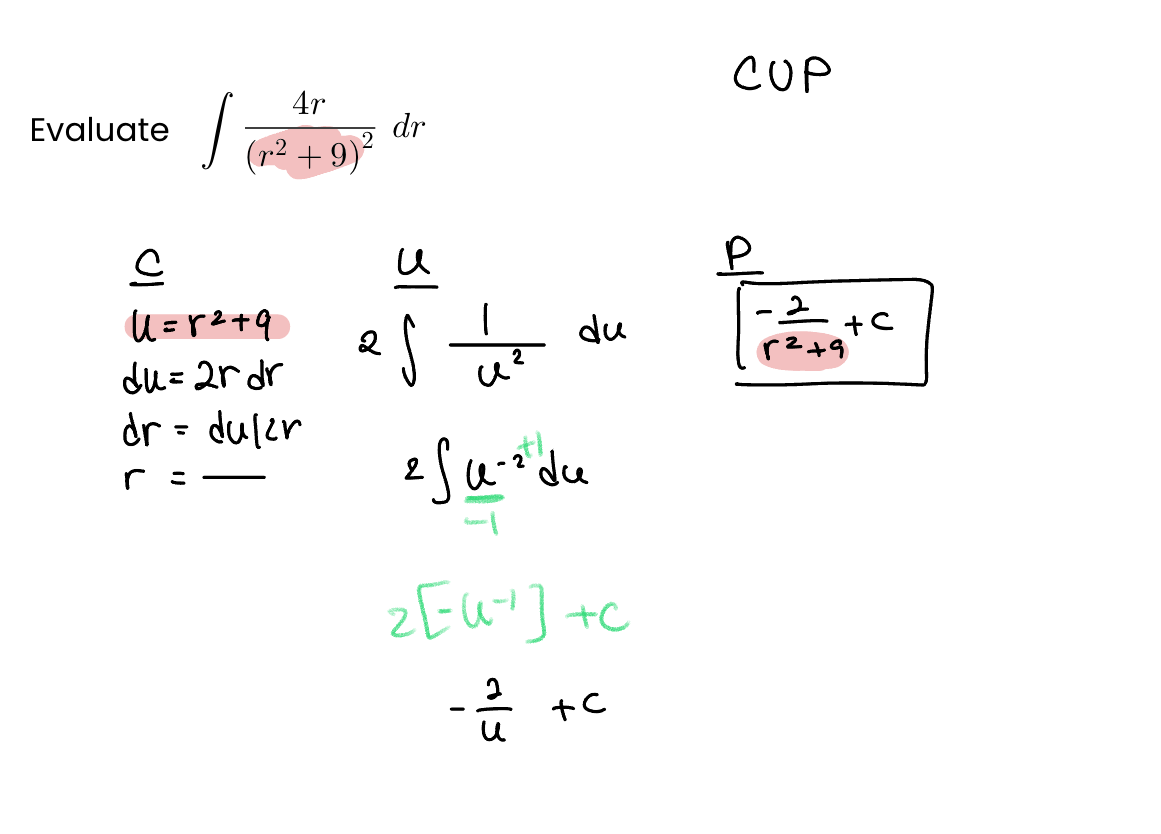 CUP
Evaluate ∫ 4r / (r² + 9)² dr
C
u = r² + 9
du = 2r dr
dr = du/2r
r = —
U
2 ∫ 1 / u² du
2 ∫ u⁻² ⁺¹ du
-1
2[-u⁻¹] + C
- 2 / u + C
P
- 2 / r² + 9 + C